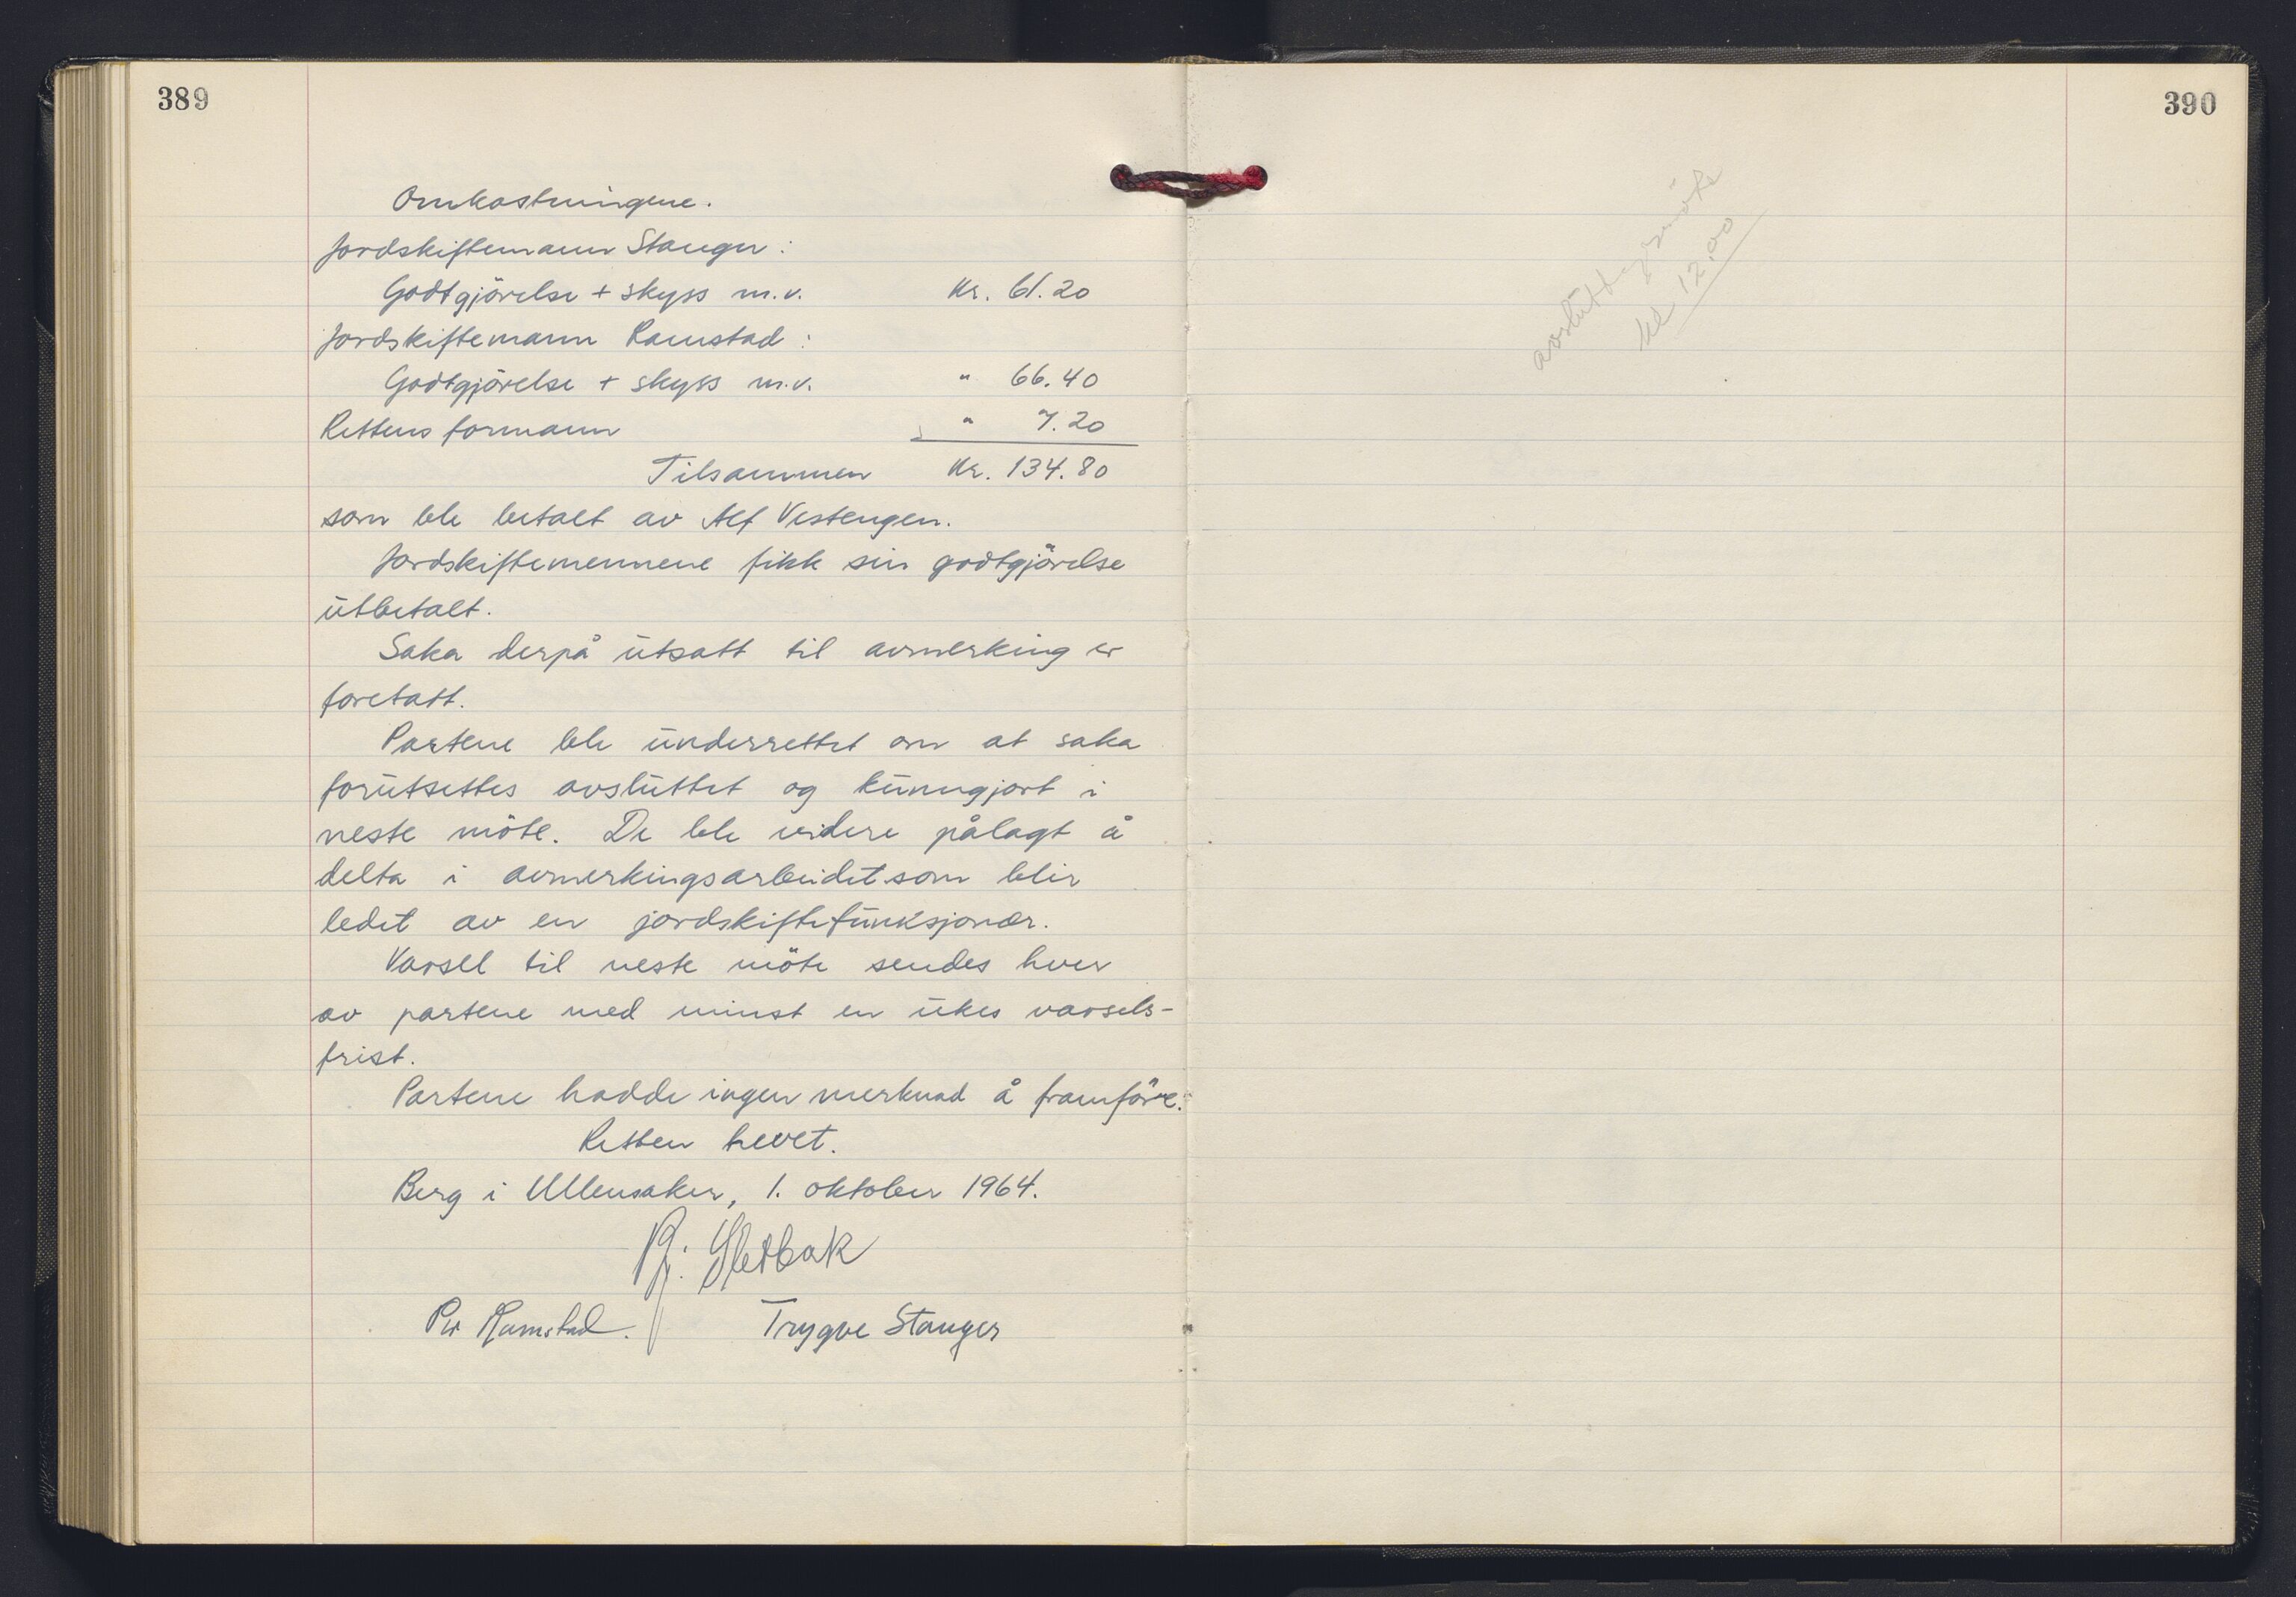 389
Omkostningene.
Jordskiftemann Stanger:
Godtgjörelse + skyss m.v. Kr. 61.20
Jordskiftemann Ramstad:
Godtgjörelse + skyss m.v. " 66.40
Rettens formann " 7.20
Tilsammen Kr. 134.80
som ble betalt av Alf Vestengen.
Jordskiftemennene fikk sin godtgjörelse
utbetalt.
Saka derpå utsatt til avmerking er
foretatt.
Partene ble underrettet om at saka
forutsettes avsluttet og kunngjort i
neste möte. De ble videre pålagt å
delta i avmerkingsarbeidet som blir
ledet av en jordskiftefunksjonær.
Varsel til neste möte sendes hver
av partene med minst en ukes varsels-
frist.
Partene hadde ingen merknad å framföre.
Retten hevet.
Berg i Ullensaker, 1. oktober 1964.
Sletbak
Per Ramstad. Trygve Stanger
390
möte
kl 12.00